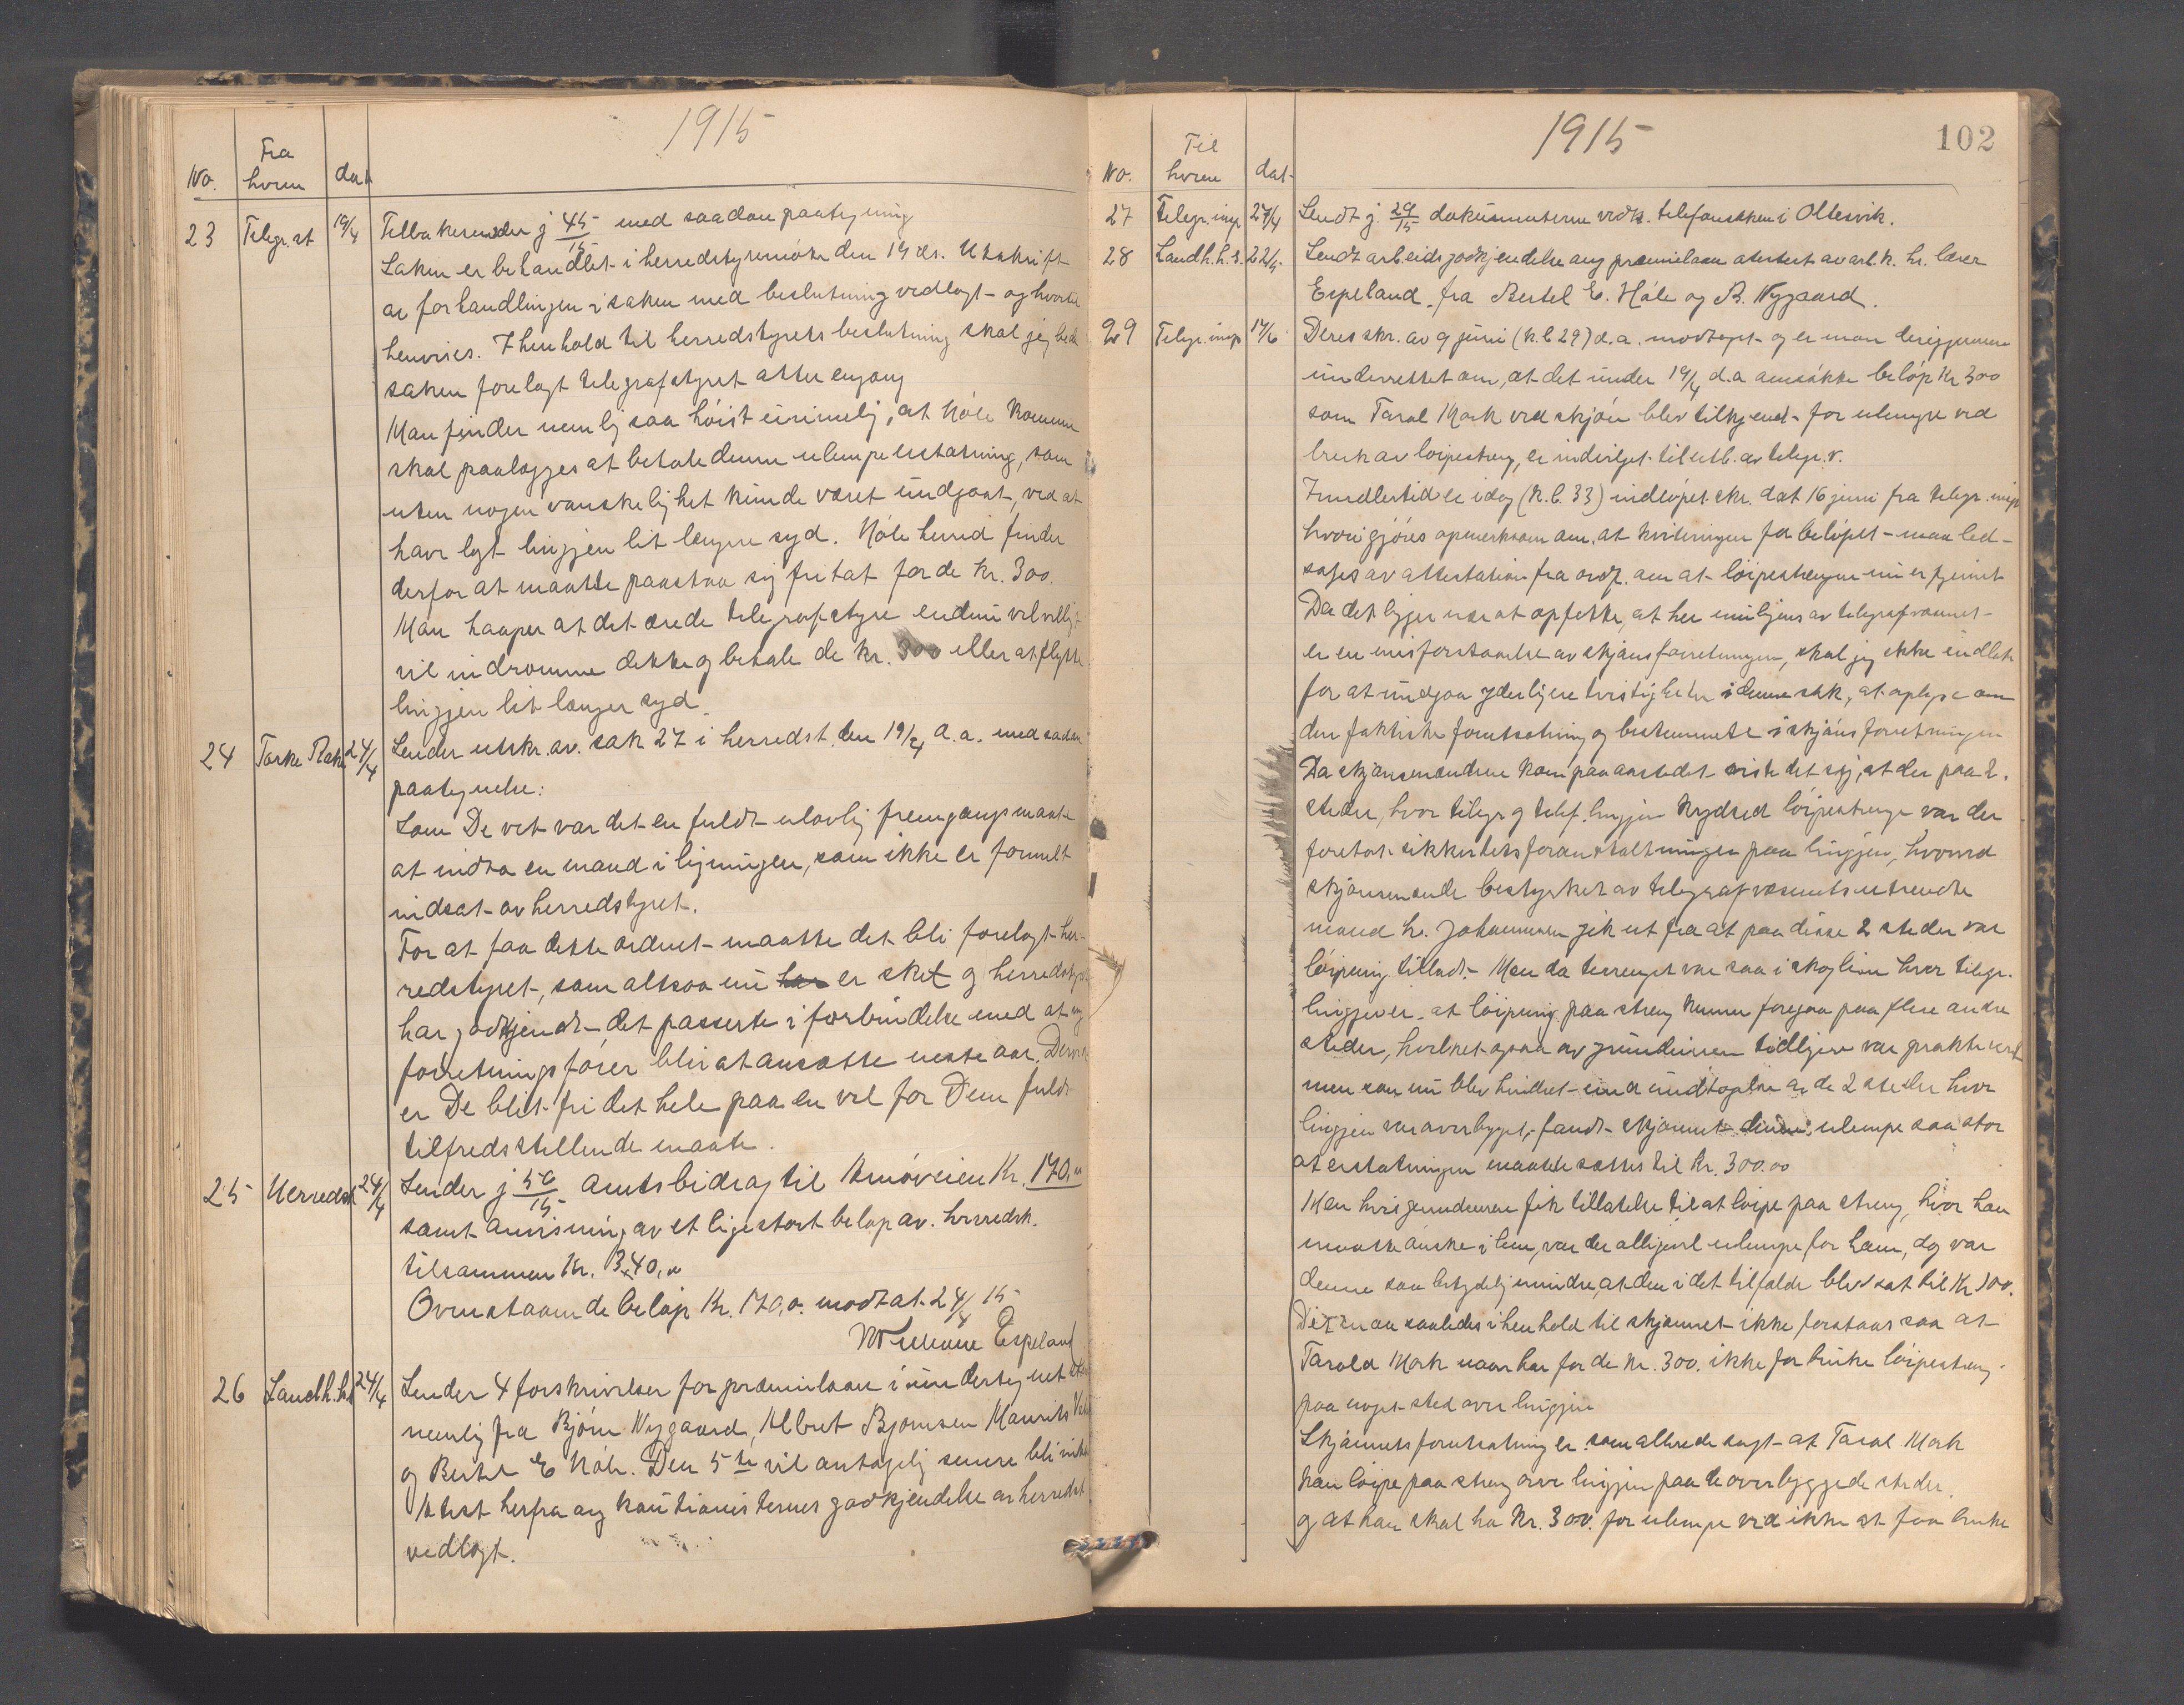 1915
No. Fra hvem dat
23 Telegr. st 19/4 Tilbakesender j 45/15 med saadan paategning
Saken er behandlet i herredstyremøte den 19 ds. Utskrift
av forhandlingen i saken med beslutning vedlagt - og hvortil
henvises. I henhold til herredstyrets beslutning skal jeg bede
saken forelagt telegrafstyret atter engang
Man finder nemlig saa høist urimelig, at Høle komune
skal paalægges at betale denne ulempeerstatning, som
uten nogen vanskelighet kunde været undgaat, ved at
havt lagt linjen lit længer syd. Høle herred finder
derfor at maatte paastaa sig fritat for de kr. 300.
Man haaper at det ærede telegrafstyre endnu velvilligt
vil indrømme dekke og betale de kr. 300 eller at flytte
linjen lit længer syd
24 Torke Rake 24/4 Sender utskr. av. sak 27 i herredst. den 19/4 d.a. med sadan
paategnelse:
Som De vet var det en fuldt ulovlig fremgangsmaate
at indta en mand i ligningen, som ikke er formelt
indsat av herredstyret.
For at faa dette ordnet maatte det bli forelagt her-
redstyret, som altsaa nu har er sket og herredstyret
har godkjendt det passerte i forbindelse med at ny
forretningsfører blir at ansætte neste aar. Derved
er De blit fri det hele paa en vel for Dem fuldt
tilfredsstillende maate.
25 Herredsk 24/4 Sender j 50/15 amtsbidrag til Kmøveien Kr. 170,"
samt anvisning av et ligestort beløp av. herredsk.
tilsammen Kr. 340,"
Ovenstaaende beløp Kr. 170,0. modtat. 24/4 15
Espeland
26 Landh. b. 24/4 Sender 4 forskrivelser for præmielaan i undertegnet stand
nemlig fra Bjørn Nygaard, Albret Bjørnsen Maurits
og Bertel E Høle. Den 5te vil antagelig senere bli indsendt
Attest herfra ang kautionisternes godkjendelse av herredst
vedlagt.
1915 102
No. Til hvem dat-
27 Telegr. insp 27/4 Sendt j. 29/15 dokumenterne vedk. telefonsaken i Oltesvik.
28 Landh. h. s. 22/5. Sendt arbeidsgodkjendelse ang præmielaan atestert av arb. k. hr. lærer
Espeland fra Bertel E. Høle og B. Nygaard.
29 Telegr. insp 17/6 Deres skr. av 9 juni (k.b 29) d.a. modtaget og er man derigjennem
underrettet om, at det under 19/4 d.a ansøkte beløp Kr 300
som Taral Mork ved skjøn blev tilkjend for ulempe ved
bruk av løipestreng, er indvilget til utb. av telegr. v.
Imidlertid er idag (k.b. 33) indløpet skr. dat 16 juni fra telegr. insp
hvori gjøres opmerksom om, at kviteringen for beløpet - maa led-
sages av attestation fra ordf. om at løipestrengen nu er fjernet
Da det ligger nær at opfatte, at her muligens av telegrafvæsnet
er en misforstaaelse av skjønsforretningen, skal jeg ikke undlate
for at undgaa yderligere tvistigheter i denne sak, at oplyse om
den faktiske forutsætning og bestemmelse i skjønsforretningen
Da skjønsmændene kom paa aastedet viste det sig, at der paa 2.
steder, hvor telegr og telef. linjen krydset løipestrenge var der
foretat sikkerhetsforanstaltninger paa linjen, hvorved
skjønsmænde bestyrket av telegrafvæsenets utsendte
mand hr. Johannesen gik ut fra at paa disse 2 steder var
løipning tilladt. Men da terrenget var saa i skoglien hvor telegr.
linjen er. at løipning paa streng kunne foregaa paa flere andre
steder, hvilket ogsaa av grundeieren tidligere var praktisert
men som nu blev hindret undtagelse av de 2 steder hvor
linjen var overbygget, fandt skjønnet denne ulempe saa stor
at erstatningen maatte sættes til Kr. 300.00
Men hvis grundeieren fik tillatelse til at løipe paa streng, hvor han
maatte ønske i lien, var der alligevel ulempe for ham, dog var
denne saa betydelig mindre, at den i det tilfælde blev sat til Kr 100.
Det maa saaledes i henhold til skjønnet ikke forstaaes saa at
Tarald Mork naar har for de kr. 300. ikke før bruke løipestreng
paa noget sted over linjen
Skjønnets forutsætning er som allerede sagt - at Taral Mork
kan løipe paa streng over linjen paa de overbyggede steder
og at han skal ha Kr. 300. for ulempe ved ikke at faa bruke